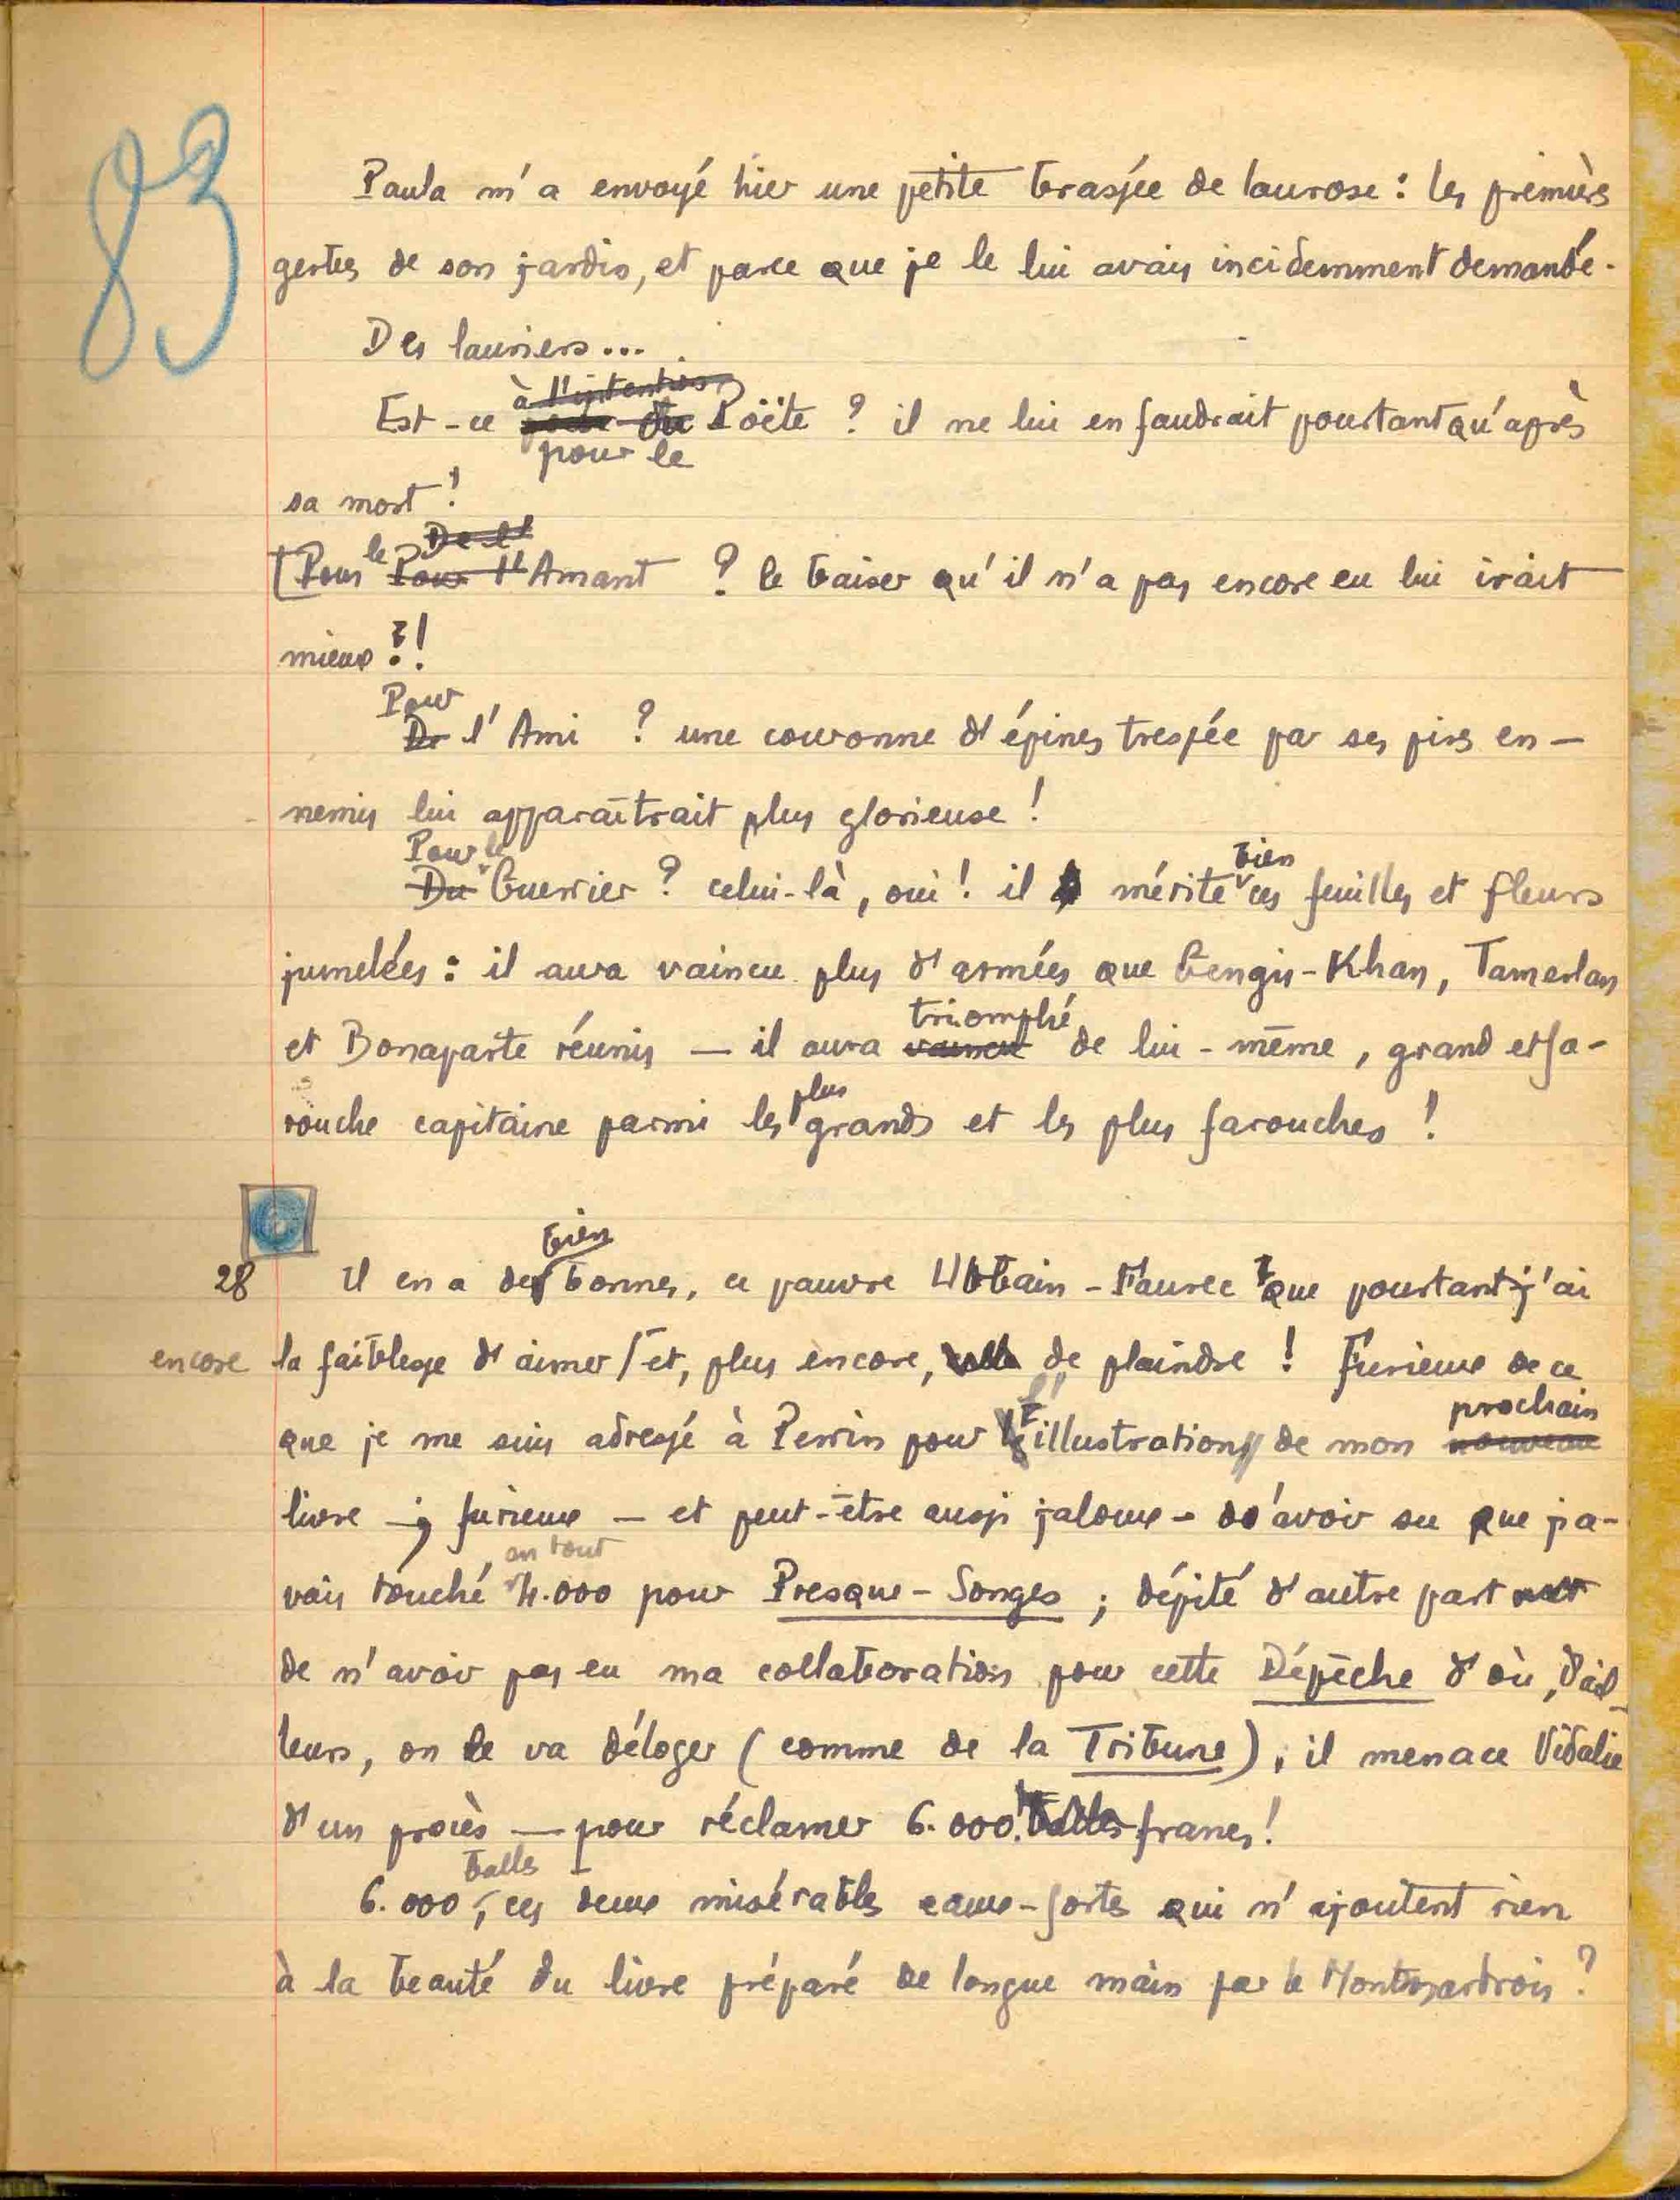 83
Paula m'a envoyé hier une petite brassée de laurose : les premiers
gestes de son jardin, et parce que je le lui avais incidemment demandé.
Des lauriers...
à l'intention
Est-ce du Poëte ? il ne lui en faudrait pourtant qu'après
pour le
sa mort !
De l'
[Pour le Pour l'Amant ? le baiser qu'il n'a pas encore eu lui irait
mieux ?!
Pour
De l'Ami ? une couronne d'épines tressée par ses pires en-
nemis lui apparaîtrait plus glorieuse !
Pour le bien
Du Guerrier ? celui-là, oui ! il mérite ces feuilles et fleurs
jumelées : il aura vaincu plus d'armées que Gengis-Khan, Tamerlan
triomphé
et Bonaparte réunis — il aura vaincu de lui-même, grand et fa-
plus
rouche capitaine parmi les grands et les plus farouches !
bien
28 Il en a de bonnes, ce pauvre Urbain-Faurec que pourtant j'ai
encore la faiblesse d'aimer et, plus encore, de plaindre ! Furieux de ce
l' prochain
que je me suis adressé à Perrin pour illustration de mon nouveau
livre ; furieux — et peut-être aussi jaloux — d'avoir su que j'a-
en tout
vais touché 4.000 pour Presque-Songes ; dépité d'autre part
de n'avoir pas eu ma collaboration pour cette Dépêche d'où, d'ail-
leurs, on le va déloger (comme de la Tribune), il menace Vidalie
d'un procès — pour réclamer 6.000 balles francs !
balles
6.000, ces deux misérables eaux-fortes qui n'ajoutent rien
à la beauté du livre préparé de longue main par le Montmartrois ?